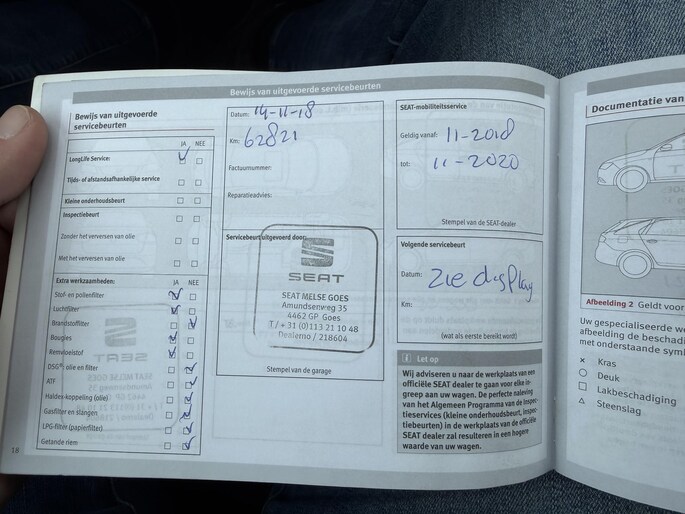 Bewijs van uitgevoerde servicebeurten
Bewijs van uitgevoerde
servicebeurten
JA NEE
LongLife Service:
Tijds- of afstandsafhankelijke service
Kleine onderhoudsbeurt
Inspectiebeurt
Zonder het verversen van olie
Met het verversen van olie
Extra werkzaamheden: JA NEE
Stof- en pollenfilter
Luchtfilter
Brandstoffilter
Bougies
Remvloeistof
DSG®: olie en filter
ATF
Haldex-koppeling (olie)
Gasfilter en slangen
LPG-filter (papierfilter)
Getande riem
18
Datum: 14-11-18
Km: 62821
Factuurnummer:
Reparatieadvies:
Servicebeurt uitgevoerd door:
SEAT
SEAT MELSE GOES
Amundsenweg 35
4462 GP Goes
T / + 31 (0)113 21 10 48
Dealerno / 218604
Stempel van de garage
SEAT-mobiliteitsservice
Geldig vanaf: 11-2018
tot: 11-2020
Stempel van de SEAT-dealer
Volgende servicebeurt
Datum: zie display
Km:
(wat als eerste bereikt wordt)
i Let op
Wij adviseren u naar de werkplaats van een
officiële SEAT dealer te gaan voor elke in-
greep aan uw wagen. De perfecte naleving
van het Algemeen Programma van de inspec-
tieservices (kleine onderhoudsbeurt, inspec-
tiebeurten) in de werkplaats van de officiële
SEAT dealer zal resulteren in een hogere
waarde van uw wagen.
Documentatie van
Afbeelding 2 Geldt voor
Uw gespecialiseerde w
afbeelding de beschadi
met onderstaande symb
× Kras
○ Deuk
□ Lakbeschadiging
△ Steenslag